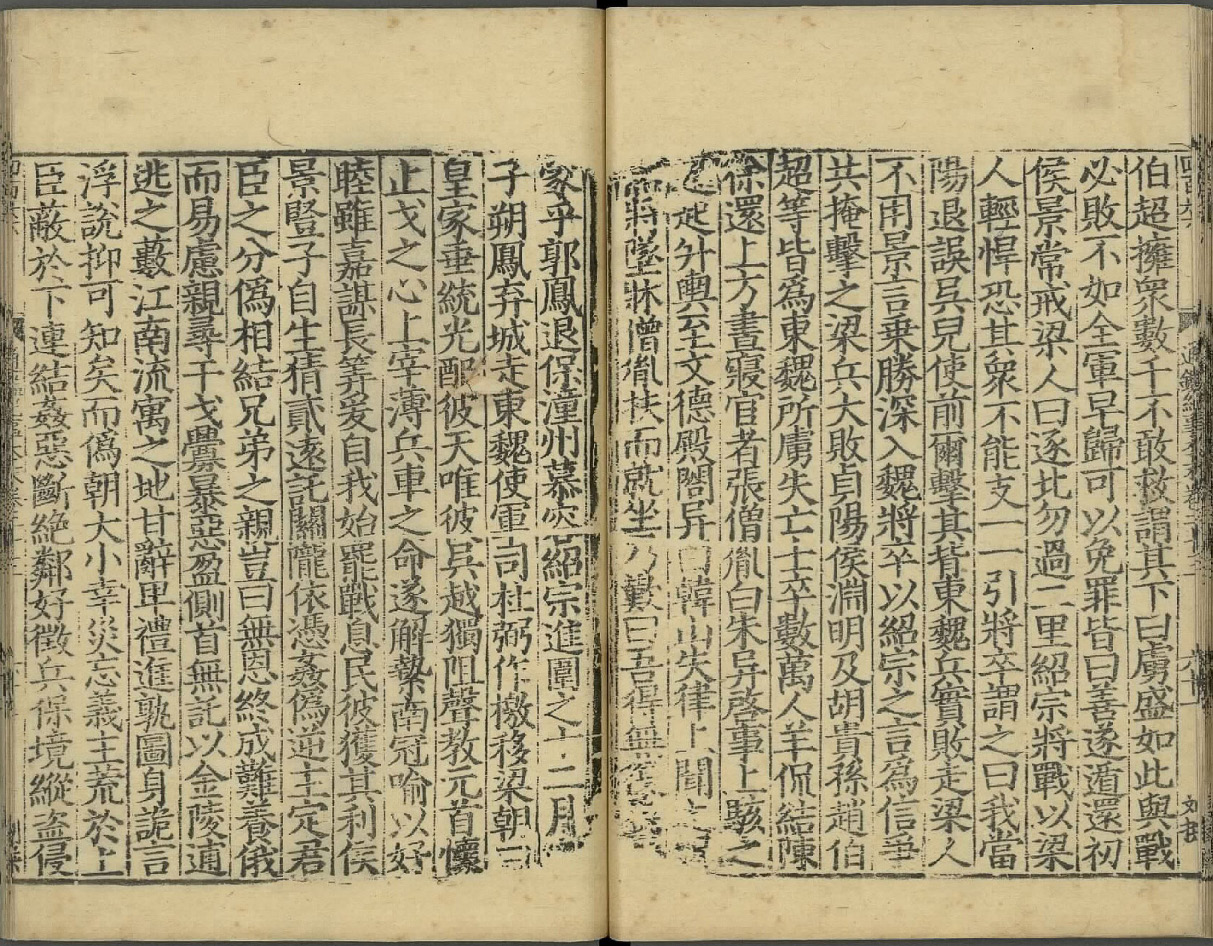 伯超擁衆數千不敢救謂其下曰虜盛如此與戰
必敗不如全軍早歸可以免罪皆曰善遂遁還初
侯景常戒梁人曰逐北勿過二里紹宗將戰以梁
人輕悍恐其衆不能支一一引將卒謂之曰我當
陽退誤吳兒使前爾擊其背東魏兵實敗走梁人
不用景言乗勝深入魏將卒以紹宗之言爲信爭
共掩擊之梁兵大敗貞陽侯淵明及胡貴孫趙伯
超等皆爲東魏所虜失亡士卒數萬人羊侃結陳
徐還上方晝寢宦者張僧胤白朱异啓事上駭之
起升輿至文德殿閤异曰韓山失律上聞之
將墜牀僧胤扶而就坐乃歎曰吾得無
家乎郭鳳退保潼州慕容紹宗進圍之十二月
子朔鳳弃城走東魏使軍司杜弼作檄移梁朝曰
皇家垂統光配彼天唯彼吳越獨阻聲教元首懷
止戈之心上宰薄兵車之命遂解縶南冠喻以好
睦雖嘉謀長筭爰自我始罷戰息民彼獲其利侯
景豎子自生猜貳遠託關隴依憑姦僞逆主定君
臣之分僞相結兄弟之親豈曰無恩終成難養俄
而易慮親尋干戈釁暴惡盈側首無託以金陵逋
逃之藪江南流寓之地甘辭卑禮進孰圖身詭言
浮說抑可知矣而僞朝大小幸災忘義主荒於上
臣蔽於下連結姦惡斷絶鄰好徵兵保境縱盗侵